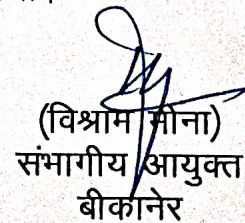 (विश्राम मीना)
संभागीय आयुक्त
बीकानेर